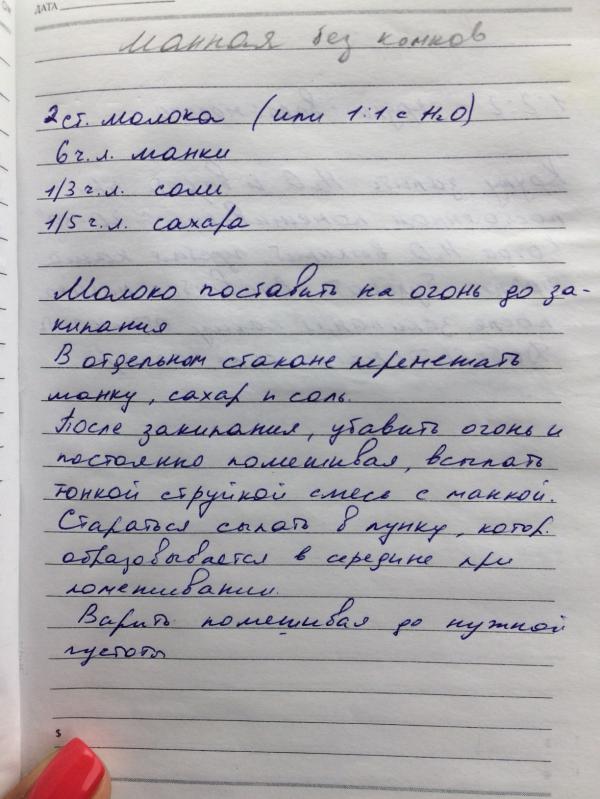 ДАТА
Манная без комков
2 ст. молока (или 1:1 с H₂O)
6 ч.л. манки
1/3 ч.л. соли
1/5 ч.л. сахара
Молоко поставить на огонь до за-
кипания
В отдельном стакане перемешать
манку, сахар и соль.
После закипания, убавить огонь и
постоянно помешивая, всыпать
тонкой струйкой смесь с манкой.
Стараться сыпать в лунку, котор.
образовывается в середине при
помешивании.
Варить помешивая до нужной
густоты
$